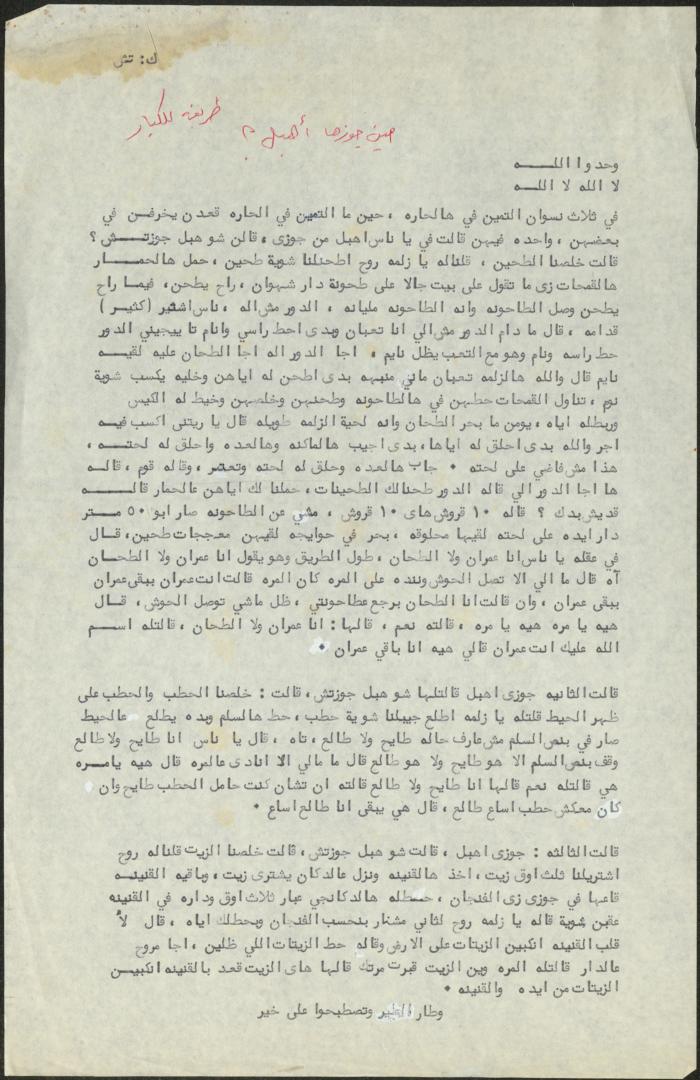 ك: تش
طريفة للكبار
مين جوزها أهبل ؟
وحدوا اللـــه
لا الله لا واللـــه
في ثلاث نسوان التمين في هالحاره ، حين ما التمين في الحاره قعدن يخرفن في
بعضهن ، واحده فيهن قالت في يا ناس اهبل من جوزي ، قالن شو هبل جوزتـــش ؟
قالت خلصنا الطحين ، قلناله يا زلمه روح اطحنلنا شوية طحين ، حمل هالحمــار
هالقمحات زي ما تقول على بيت جالا على طحونة دار شهوان ، راح يطحن ، فيما راح
يطحن وصل الطاحونه وانه الطاحونه مليانه ، الدور مش اله ، ناس اشثير ( كثيــر )
قدامه ، قال ما دام الدور مش الي انا تعبان وبدى احط راسي وانام تا ييجيني الدور
حط راسه ونام وهو مع التعب يظل نايم ، اجا الدور اله اجا الطحان عليه لقيــه
نايم قال والله هالزلمه تعبان ماني منبهه بدى اطحن له اياهن وخليه يكسب شوية
نوم ، تناول القمحات حطهن في هالطاحونه وطحنهن وخلصهن وخيط له الكيس
وربطله اياه ، يومن ما بحر الطحان وانه لحية الزلمه طويله قال يا ريتنى اكسب فيـــه
اجر والله بدى احلق له اياها ، بدى اجيب هالماكنه وهالعده واحلق له لحتـــه ،
هذا مش فاضي على لحته • جاب هالعده وحلق له لحته وتعتر ، وقاله قوم ، قالــه
ها اجا الدور الي قاله الدور طحنالك الطحينات ، حملنا لك اياهن عالحمار قالـــه
قديش بدك ؟ قاله ١٠ قروش هاى ١٠ قروش ، مشي عن الطاحونه صار ابو ٥٠ متــر
دار ايده على لحته لقيها محلوقه ، بحر في حوايجه لقيهن معججات طحين ، قــال
في عقله يا ناس انا عمران ولا الطحان ، طول الطريق وهو يقول انا عمران ولا الطحــان
آه قال ما الي الا تصل الحوش وننده على المره كان المره قالت انت عمران ببقى عمران
ببقى عمران ، وان قالت انا الطحان برجع عطاحونتي ، ظل ماشي توصل الحوش ، قــال
هيه يا مره هيه يا مره ، قالته نعم ، قالها : انا عمران ولا الطحان ، قالتله اســـم
الله عليك انت عمران قالي هيه انا باقي عمران •
قالت الثانيه جوزى اهبل قالتلها شو هبل جوزتش ، قالت : خلصنا الحطب والحطب على
ظهر الحيط قلتله يا زلمه اطلع جيبلنا شوية حطب ، حط هالسلم وبده يطلع عالحيط
صار في بنص السلم مش عارف حاله طايح ولا طالع ، تاه ، قال يا ناس انا طايح ولا طالع
وقف بنص السلم الا هو طايح ولا هو طالع قال ما مالي الا انادى عالمره قال هيه يا مــره
هي قالتله نعم قالها انا طايح ولا طالع قالته ان تشان كنت حامل الحطب طايح وان
كان معكش حطب اساع طالع ، قال هي يبقى انا طالع اساع •
قالت الثالثه : جوزى اهبل ، قالت شو هبل جوزتش ، قالت خلصنا الزيت قلناله روح
اشتريلنا ثلث اوق زيت ، اخذ هالقنينه ونزل عالدكان يشترى زيت ، وباقيه القنينـــه
قاعها في جوزى زى الفنجان ، حـطله هالدكانجي عبار ثلاث اوق وداره في القنينه
عقبن شوية قاله يا زلمه روح لثاني مشنار بنحسب الفنجان وبحطلك اياه ، قال لأ
قلب القنينه انكبين الزيتات على الارض وقاله حط الزيتات اللي ظلين ، اجا مروح
عالدار قالتله المره وين الزيت قبرت مرتك قالها هاى الزيت قعد بالقنينه انكبيــن
الزيتات من ايده والقنينه •
وطار الطير وتصطبحوا على خير